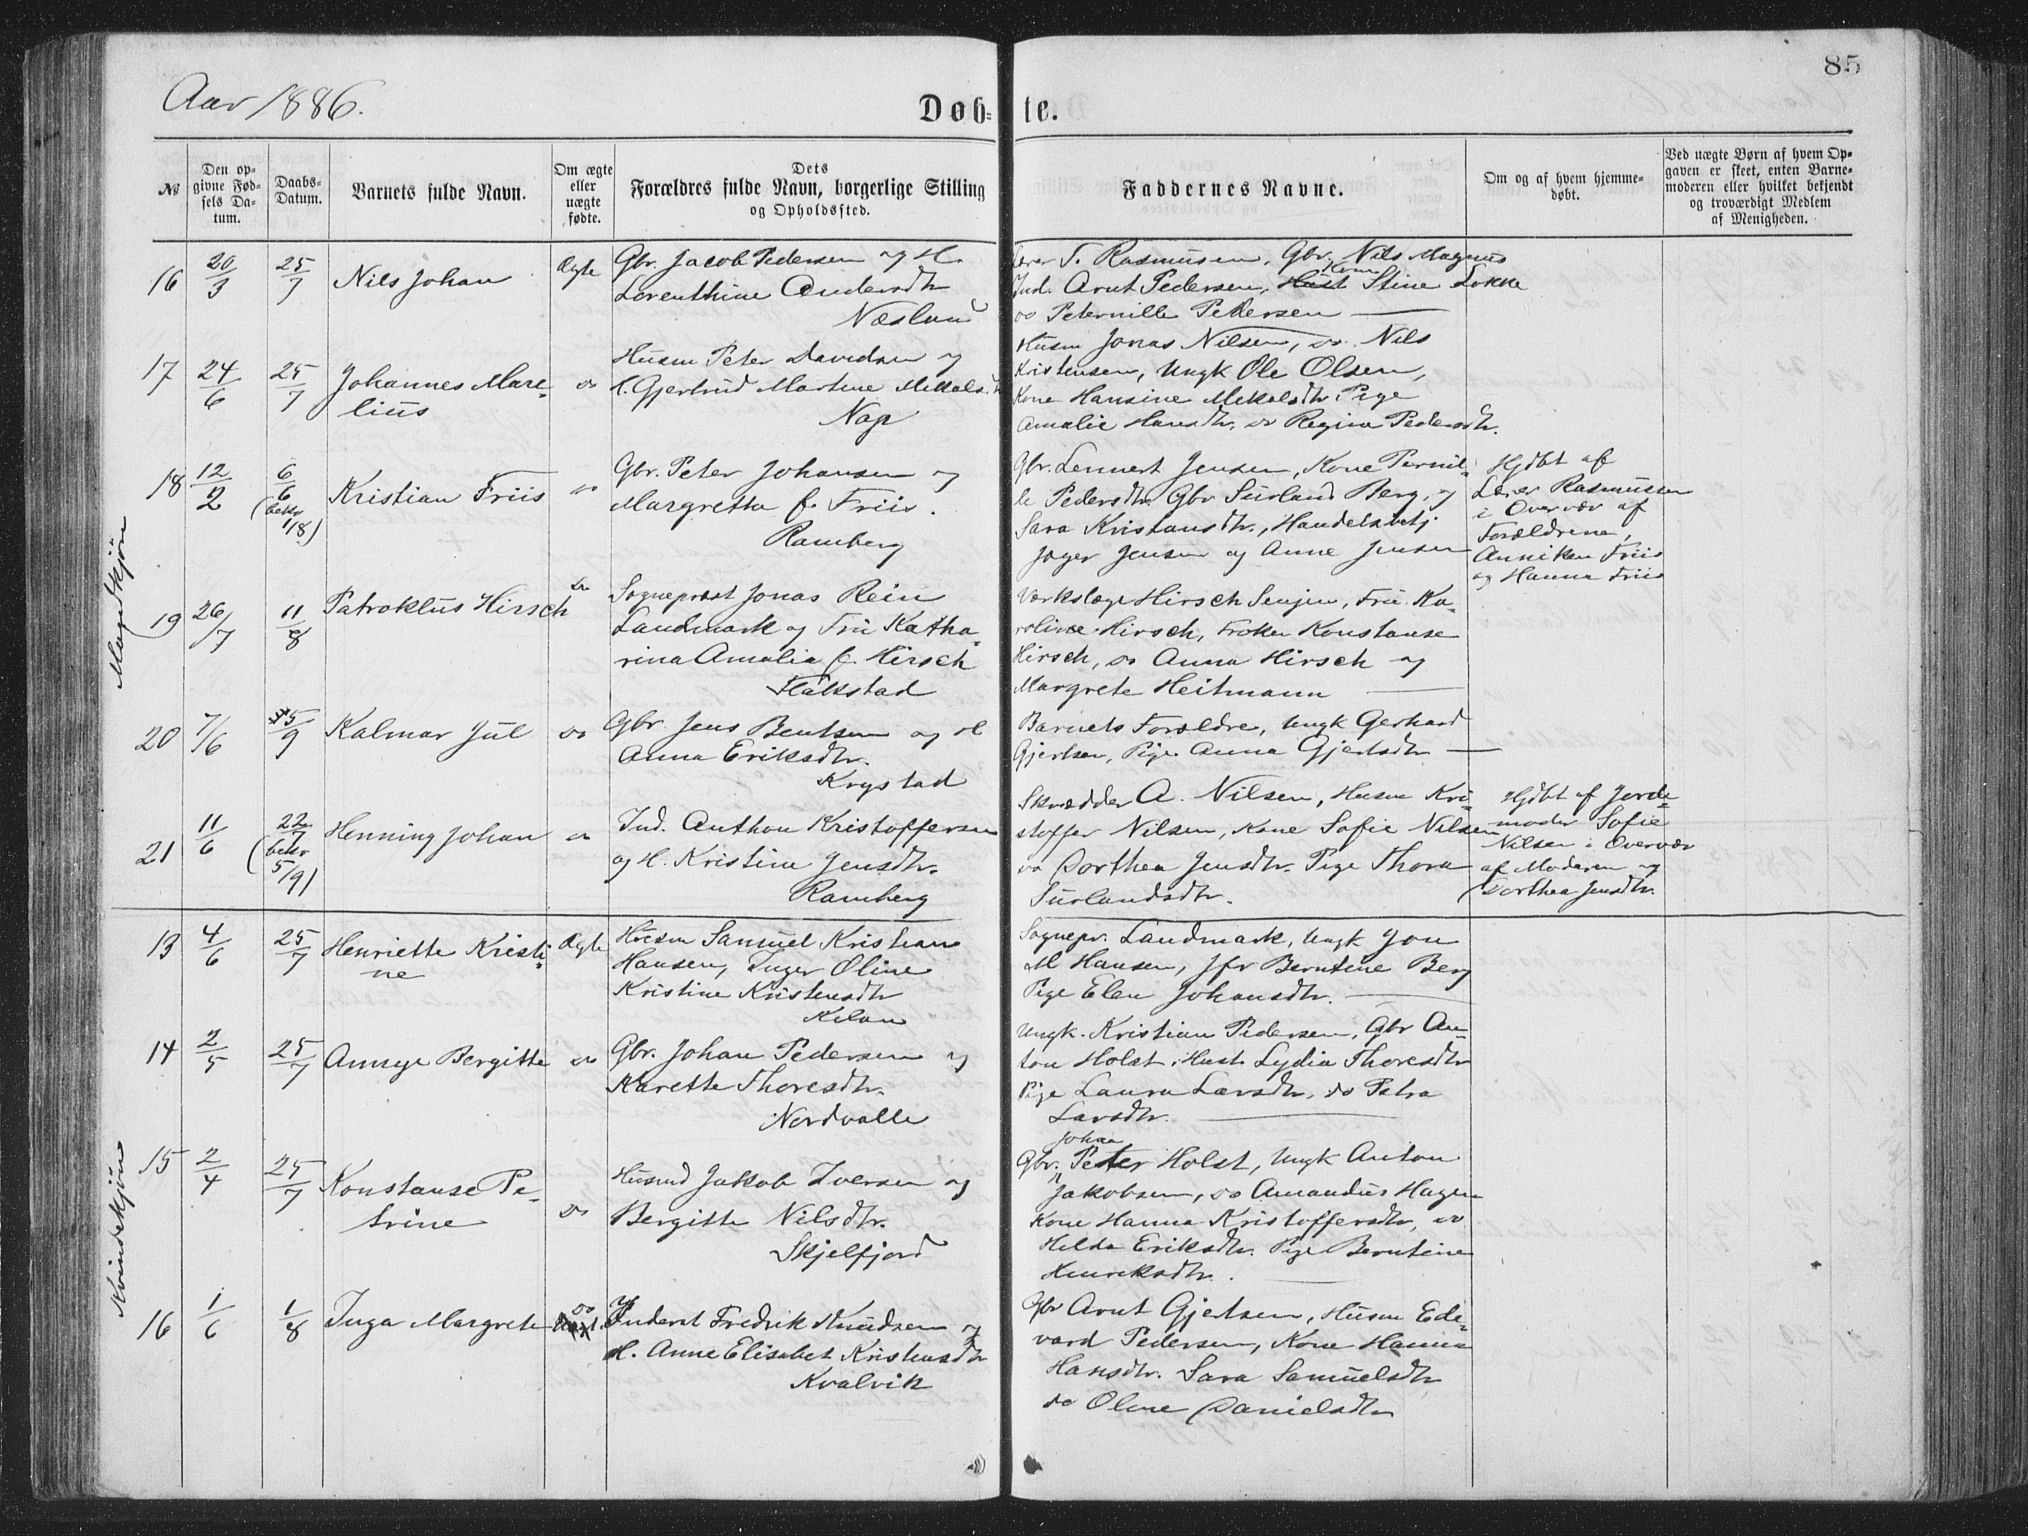 85
Aar 1886.
Døb-
te.
№
Den op-
givne Fød-
sels Da-
tum.
Daabs-
Datum.
Barnets fulde Navn.
Om ægte
eller
uægte
fødte.
Dets
Forældres fulde Navn, borgerlige Stilling
og Opholdssted.
Faddernes Navne.
Om og af hvem hjemme-
døbt.
Ved uægte Børn af hvem Op-
gaven er skeet, enten Barne-
moderen eller hvilket bekjendt
og troværdigt Medlem
af Menigheden.
Mandkjøn
16
20/3
25/7
Nils Johan
Ægte
Gbr. Jacob Pedersen og H.
Lorenthine Andersdtr
Næsland
Lærer T. Rasmussen, Gbr. Nils Magnus
Ind. Arnt Pedersen, Kone Stine Løkke
do Peternille Pedersen
17
24/6
25/7
Johannes Mare-
lius
do
Husm Peter Davidsen og
H. Gjertrud Martine Mikkelsdtr
Nap
Husm Jonas Nilsen, do. Nils
Kristensen, Ungk Ole Olsen,
Kone Hansine Mekalsdtr. Pige
Amalie Hansdtr, do Regina Pedersdtr.
18
12/2
6/6
(bekr
1/8)
Kristian Friis
do
Gbr. Peter Johansen og
Margretha f. Friis.
Ramberg
Gbr. Lennert Jensen, Kone Pernil-
le Pedersdtr. Gbr Surland Berg, og
Sara Kristansdtr., Handelsbetj
Jæger Jensen og Anne Jensen
Hjdbt af
Lærer Rasmussen
i Overvær af
Forældrene,
Anniken Friis
og Hanna Friis
19
26/7
11/8
Patroklus Hirsch
do
Sogneprest Jonas Rein
Landmark og Fru Katha-
rina Amalia f. Hirsch
Flakstad
Værkslæge Hirsch Senjen, Fru Ka-
roline Hirsch, Frøken Konstanse
Hirsch, do Anna Hirsch og
Margrete Heitmann
20
7/6
5/9
Kalmar Jul
do
Gbr. Jens Bentsen og H
Anna Eriksdtr.
Krystad
Barnets Forældre, Ungk Gerhard
Gjertsen, Pige Anna Gjertsdtr
21
11/6
22/7
(bekr
5/9)
Henning Johan
do
Ind. Anthon Kristoffersen
og H. Kristine Jensdtr.
Ramberg
Skrædder A. Nilsen, Husm Kri-
stoffer Nilsen, Kone Sofie Nilsen
do Dorthea Jensdtr. Pige Thora
Surlandsdtr.
Hjdbt af Jorde-
moder Sofie
Nilsen i Overvær
af Moderen og
Dorthea Jensdtr.
Kvindekjøn
13
4/6
25/7
Henriette Kristi-
ne
Ægte
Husm Samuel Kristian
Hansen, Inger Oline
Kristine Kristensdtr
Kilan
Sognepr. Landmark, Ungk Jon
M Hansen, Jfr Berntine Berg
Pige Elen Johansdtr.
14
2/5
25/7
Annye Bergitte
do
Gbr. Johan Pedersen og
Karette Thoresdtr.
Nordvalle
Ungk. Kristian Pedersen, Gbr An-
ton Holst, Hust. Lydia Thoresdtr
Pige Laura Larsdtr, do Petra
Larsdtr.
15
2/4
25/7
Konstanse Pe-
trine
do
Husmd Jakob Iversen og
Bergitte Nilsdtr.
Skjelfjord
Johan
Gbr. Peter Holst, Ungk Anton
Jakobsen, do Amandus Hagen
Kone Hanna Kristoffersdtr, do
Helda Eriksdtr. Pige Berntine
Henriksdtr.
16
1/6
1/8
Inga Margrete
do
Inderst Fredrik Knudsen og
H. Anne Elisabet Kristensdtr
Kvalvik
Gbr Arnt Gjertsen, Husm Ede-
vard Pedersen, Kone Hanna
Hansdtr. Sara Samuelsdtr
do Oline Danielsdtr